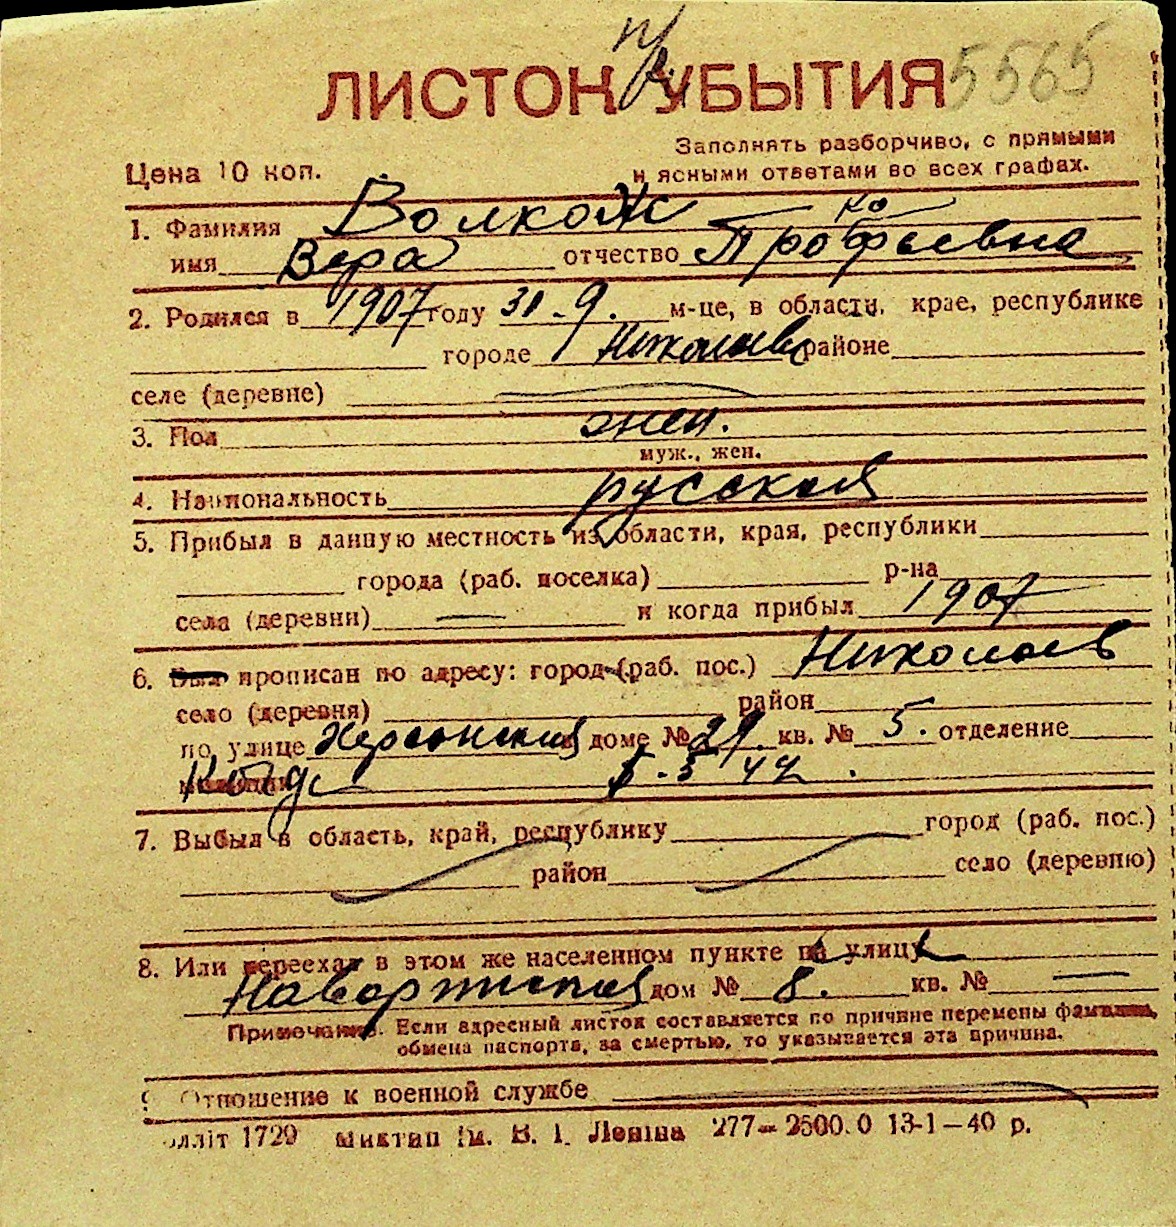 5565
ЛИСТОК УБЫТИЯ
Заполнять разборчиво, с прямыми
Цена 10 коп. и ясными ответами во всех графах.
1. Фамилия Волкож
имя Вера отчество
2. Родился в 1907 году 31.9. м-це, в области, крае, республике
городе Николаев районе
селе (деревне)
3. Пол жен.
муж., жен.
4. Национальность русская
5. Прибыл в данную местность из области, края, республики
города (раб. поселка) р-на
села (деревни) — и когда прибыл 1907
6. Был прописан по адресу: город (раб. пос.) Николаев
село (деревня) район
по улице Херсонская доме № 29. кв. № 5. отделение
5-5 44.
7. Выбыл в область, край, республику город (раб. пос.)
район село (деревню)
8. Или переехал в этом же населенном пункте по улице
дом № 8. кв. № —
Примечание. Если адресный листок составляется по причине перемены фамилии,
обмена паспорта, за смертью, то указывается эта причина.
9 Отношение к военной службе
лліт 1729 Миктип Ім. В. І. Леніна 277—2500.0 13-1—40 р.